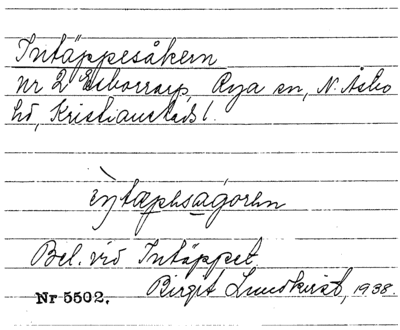 Intäppesåkern
nr 2 Esborrarp, Rya sn, N. Åsbo
hd, Kristianstads l.
Bel. vid Intäppet.
Birgit Lundkvist, 1938.
Nr 5502.